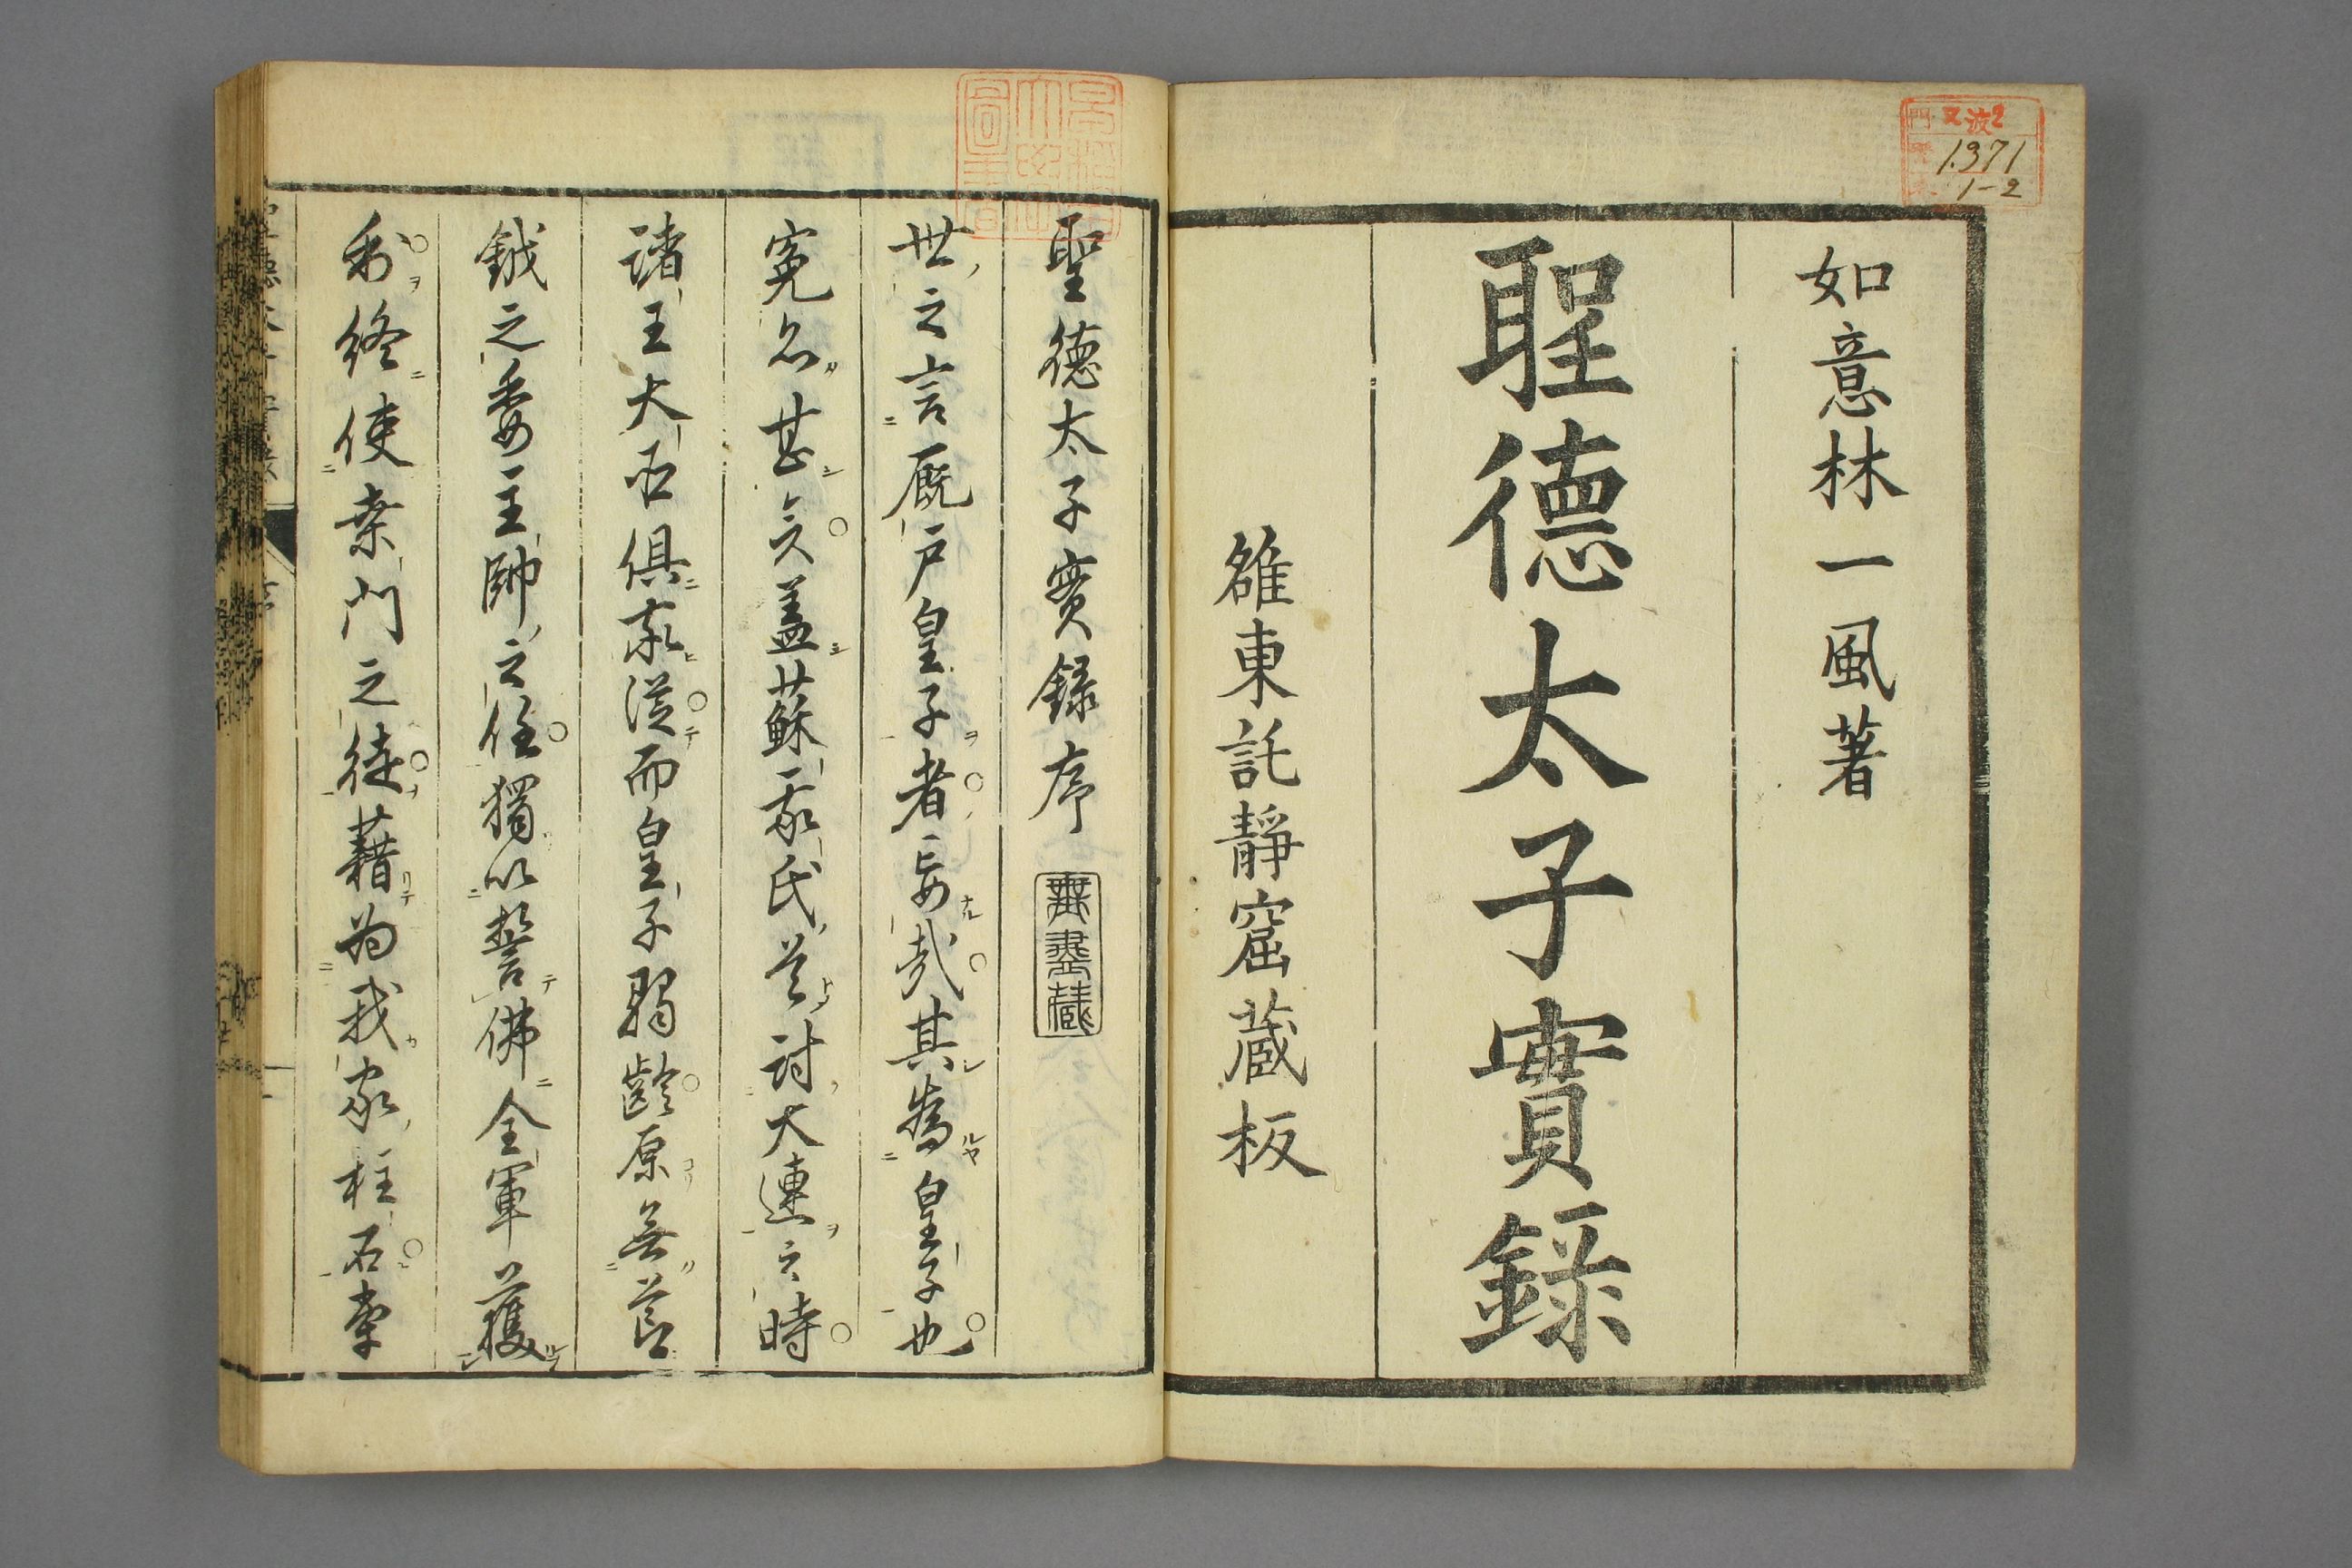 如意林一風著
聖德太子實錄
雒東託靜窟蔵板
門 又波2
1371
1-2
聖德太子實錄序
無盡蔵
世之言厩戸皇子者妄哉其為皇子也
寃名甚矣盖蘇我氏之討大連之時
諸王大臣俱敦從而皇子弱齡原無節
鉞之委主帥之任獨以誓佛全軍獲
利終使桒門之徒藉為我家柱石牽